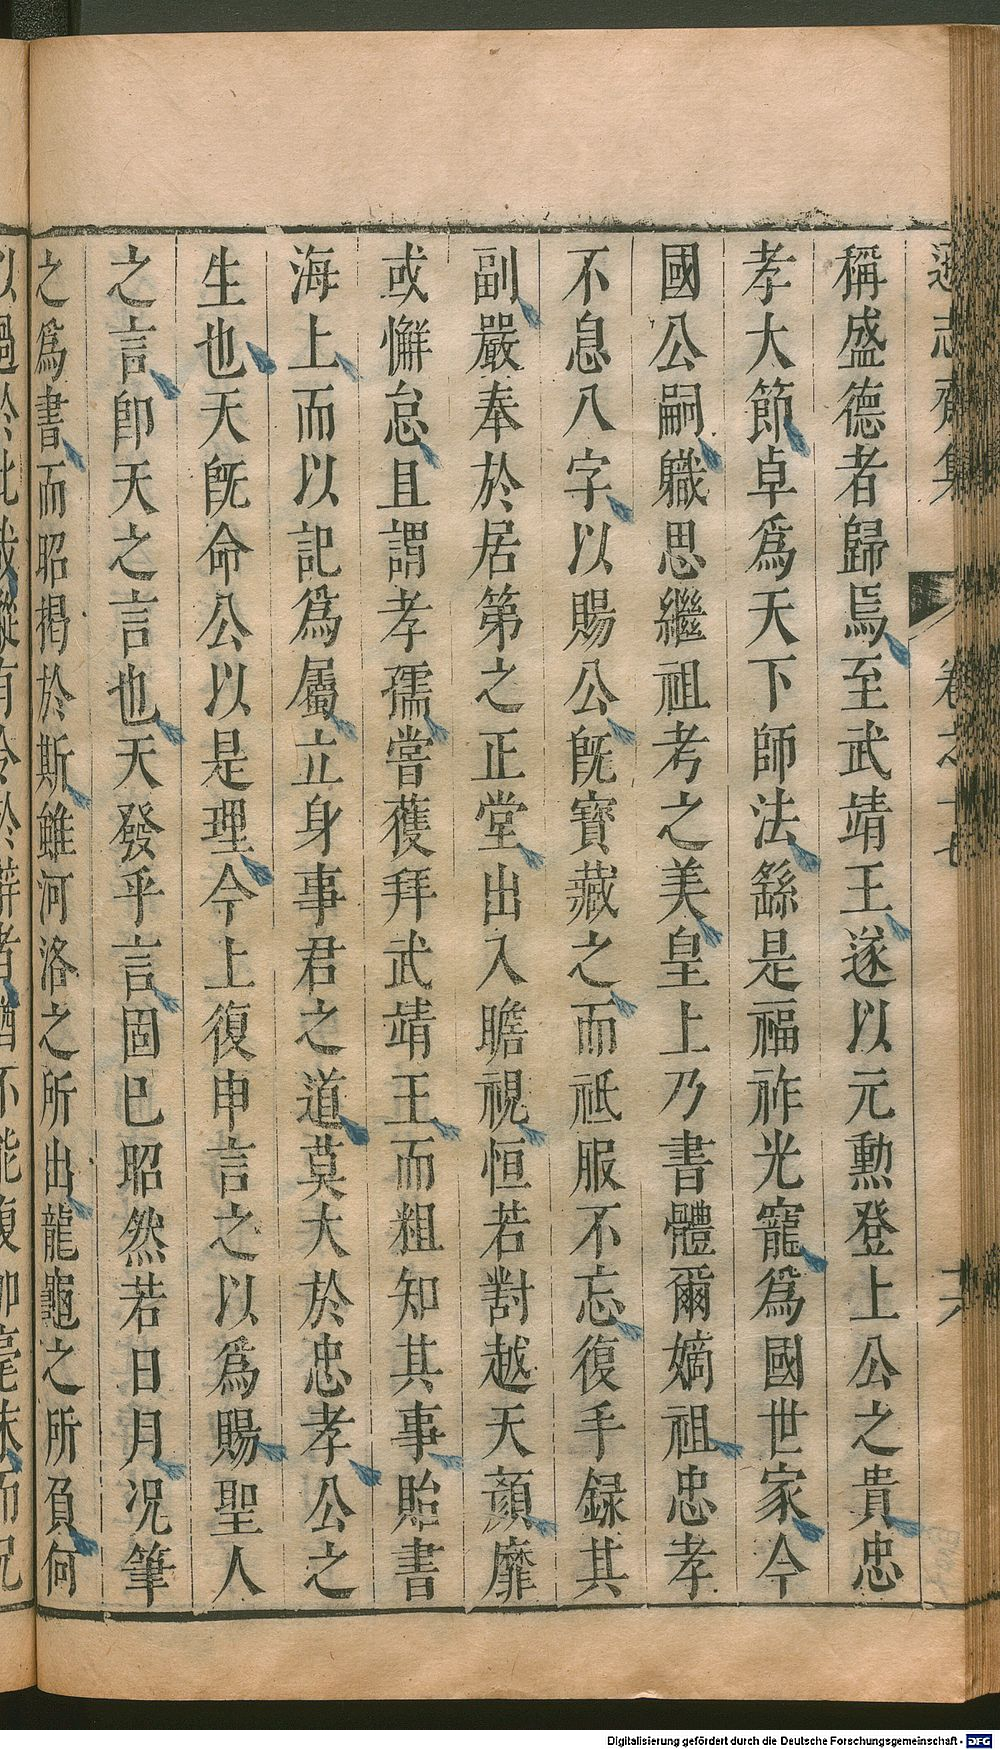 遜志齋集 卷之十七
稱盛德者歸焉至武靖王遂以元勳登上公之貴忠
孝大節卓爲天下師法繇是福祚光寵爲國世家今
國公嗣職思繼祖考之美皇上乃書體爾嫡祖忠孝
不息八字以賜公旣寳藏之而祗服不忘復手録其
副嚴奉於居第之正堂出入瞻視恒若對越天顔靡
或懈怠且謂孝孺嘗獲拜武靖王而粗知其事貽書
海上而以記爲屬立身事君之道莫大於忠孝公之
生也天旣命公以是理今上復申言之以爲賜聖人
之言卽天之言也天發乎言固已昭然若日月况筆
之爲書而昭揭於斯雖河洛之所出龍龜之所負何
Digitalisierung gefördert durch die Deutsche Forschungsgemeinschaft - DFG